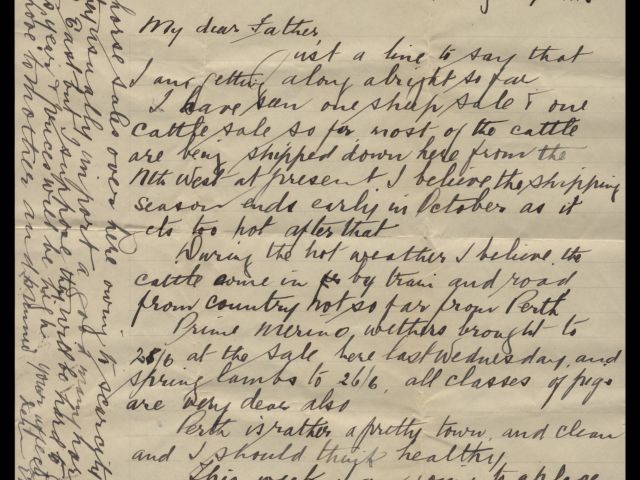 My dear Father,
Just a line to say that
I am getting along alright so far
I have seen one sheep sale & one
cattle sale so far most of the cattle
are being shipped down here from the
Nth West at present I believe the shipping
season ends early in October as it
ets too hot after that
During the hot weather I believe the
cattle come in by train and road
from country not so far from Perth
Prime Merino, wethers brought to
25/6 at the sale, here last Wednesday, and
spring lambs to 26/6, all classes of pigs
are very dear also
Perth is rather a pretty town, and clean
and I should think healthy
This week
horse sales over here owing to scarcity
usually import a good many hor
East but I suppose they will be hard
year & prices will be high
love to Mother and